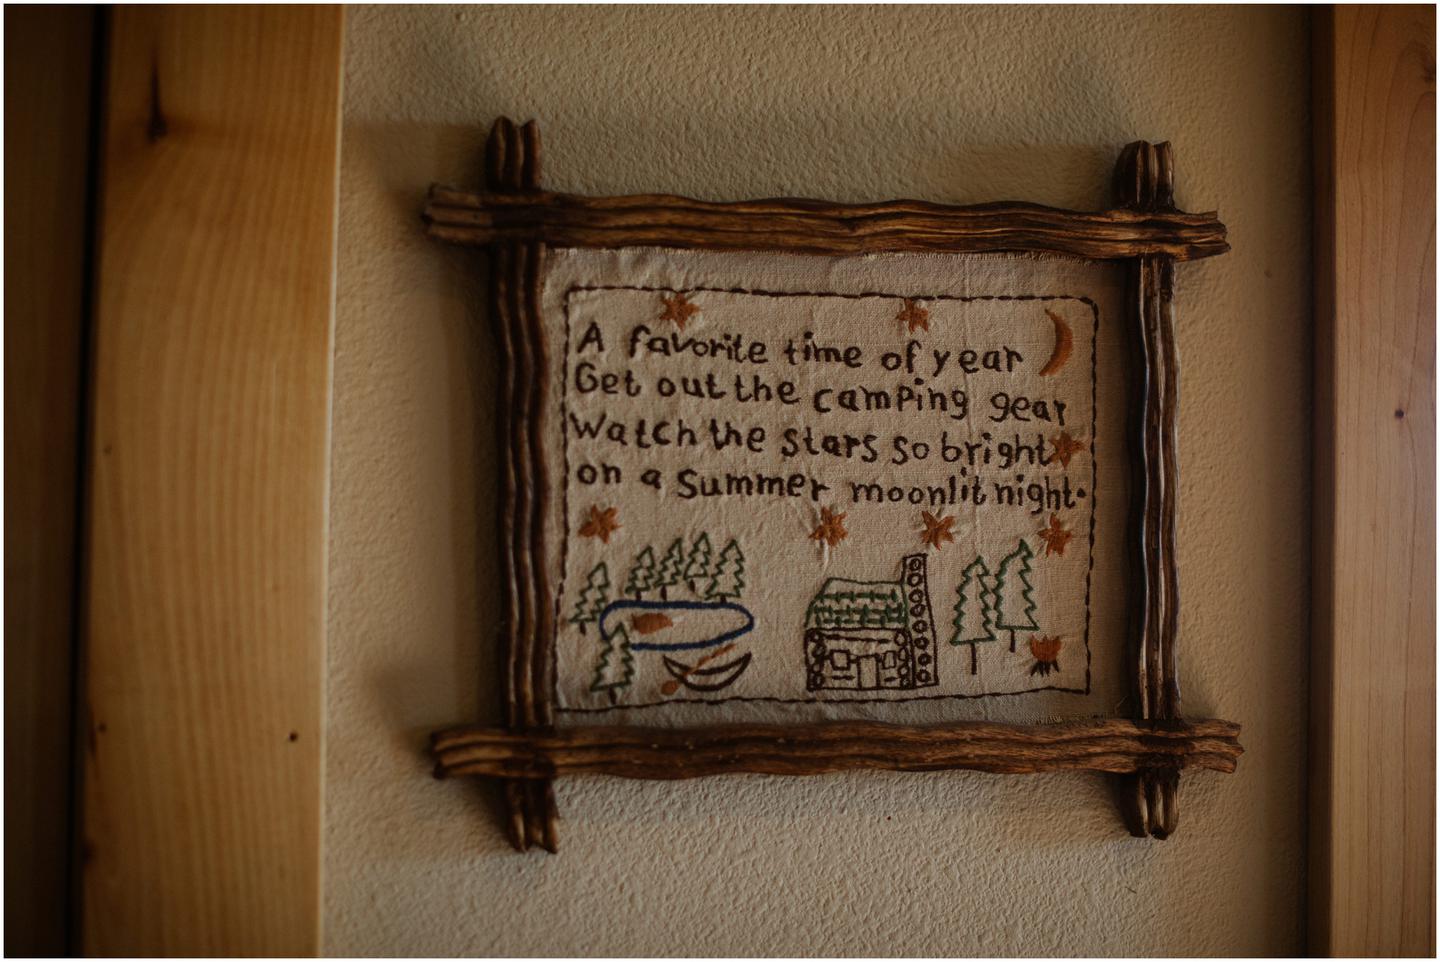 A favorite time of year
Get out the camping gear
Watch the stars so bright
on a Summer moonlit night.